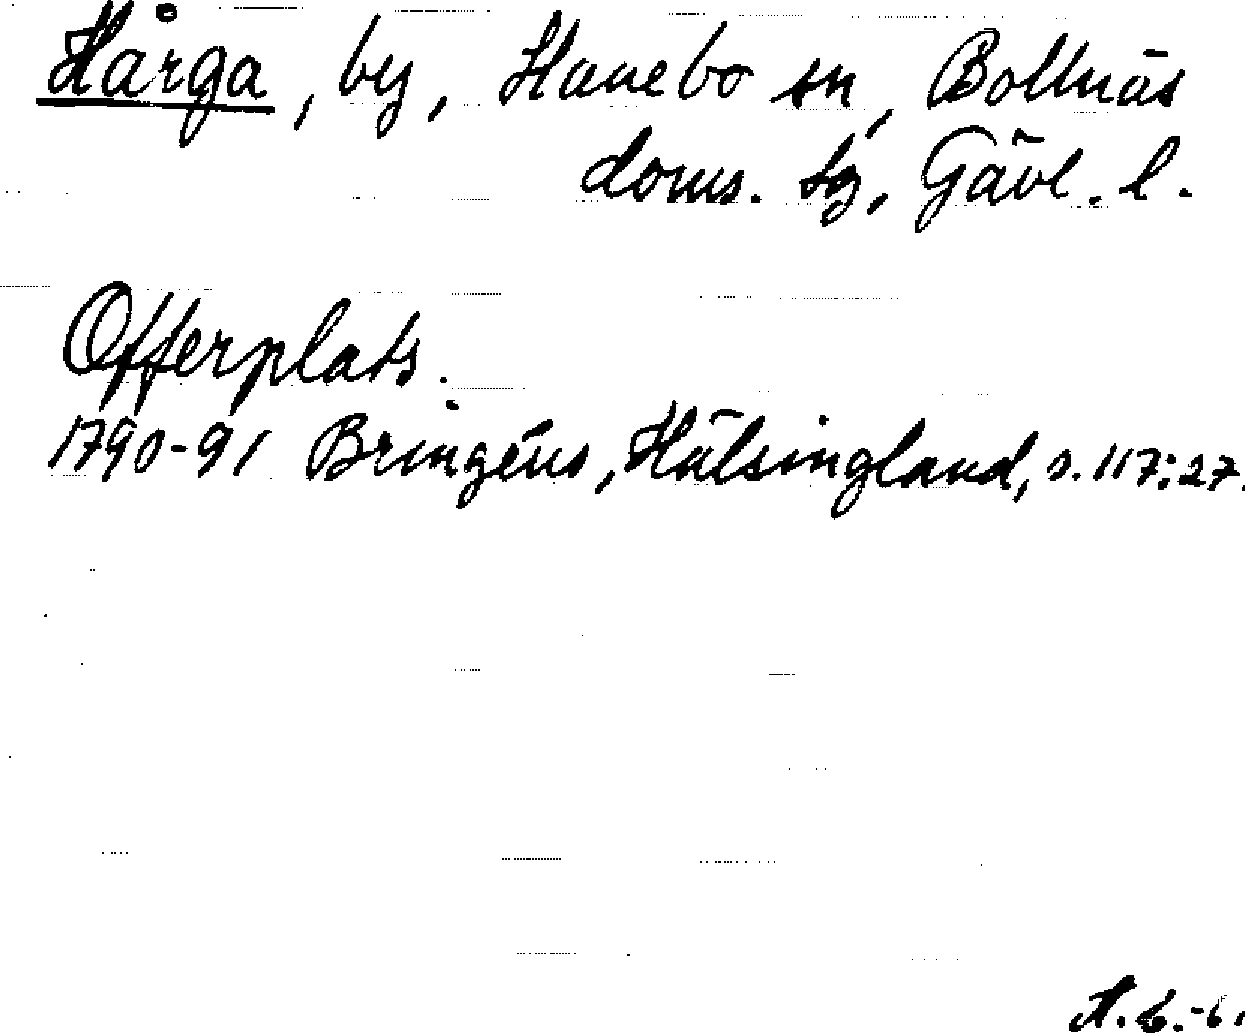 Hårga, by, Hanebo sn, Bollnäs
doms. sg, Gävl. l.
Offerplats.
1790-91 Bringéus, Hälsingland, s. 117:27.